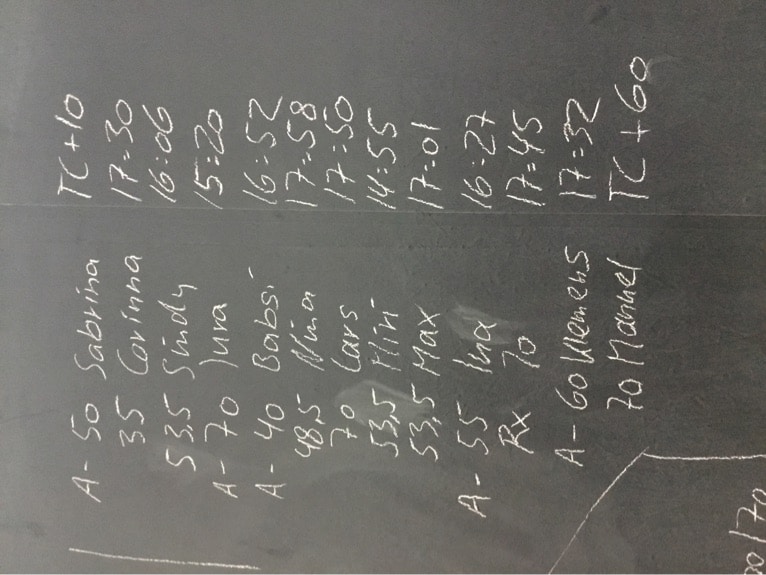 A- 50 Sabrina TC+10
35 Corinna 17:30
53,5 Sindy 16:06
A- 70 Jura 15:20
A- 40 Babsi 16:52
48,5 Nina 17:58
70 Lars 17:50
53,5 Miri 14:55
53,5 Max 17:01
A- 55 Ina 16:27
Rx 70 17:45
A- 60 Klemens 17:32
70 Manuel TC+60
00/70